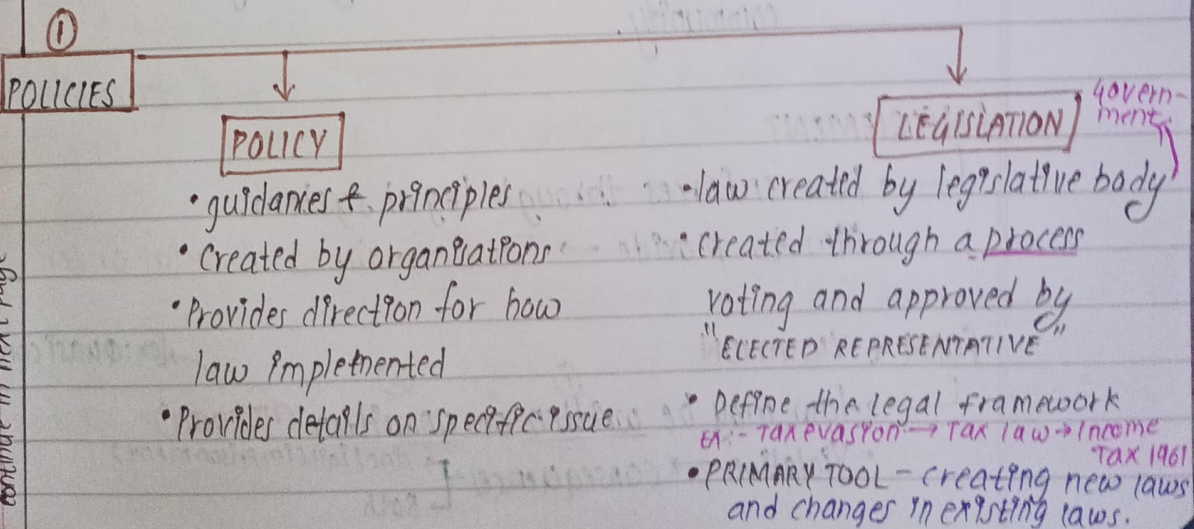 ①
POLICIES
POLICY
• guidanies & principles
• Created by organisations
• Provides direction for how
law implemented
• Provides details on specific issue
LEGISLATION
Govern-
ment.
• law created by legislative body
• created through a process
voting and approved by
"ELECTED REPRESENTATIVE"
• Define the legal framework
Ex:- Tax evasion → Tax law → Income
Tax 1961
• PRIMARY TOOL - creating new laws
and changes in existing laws.
continue in next page